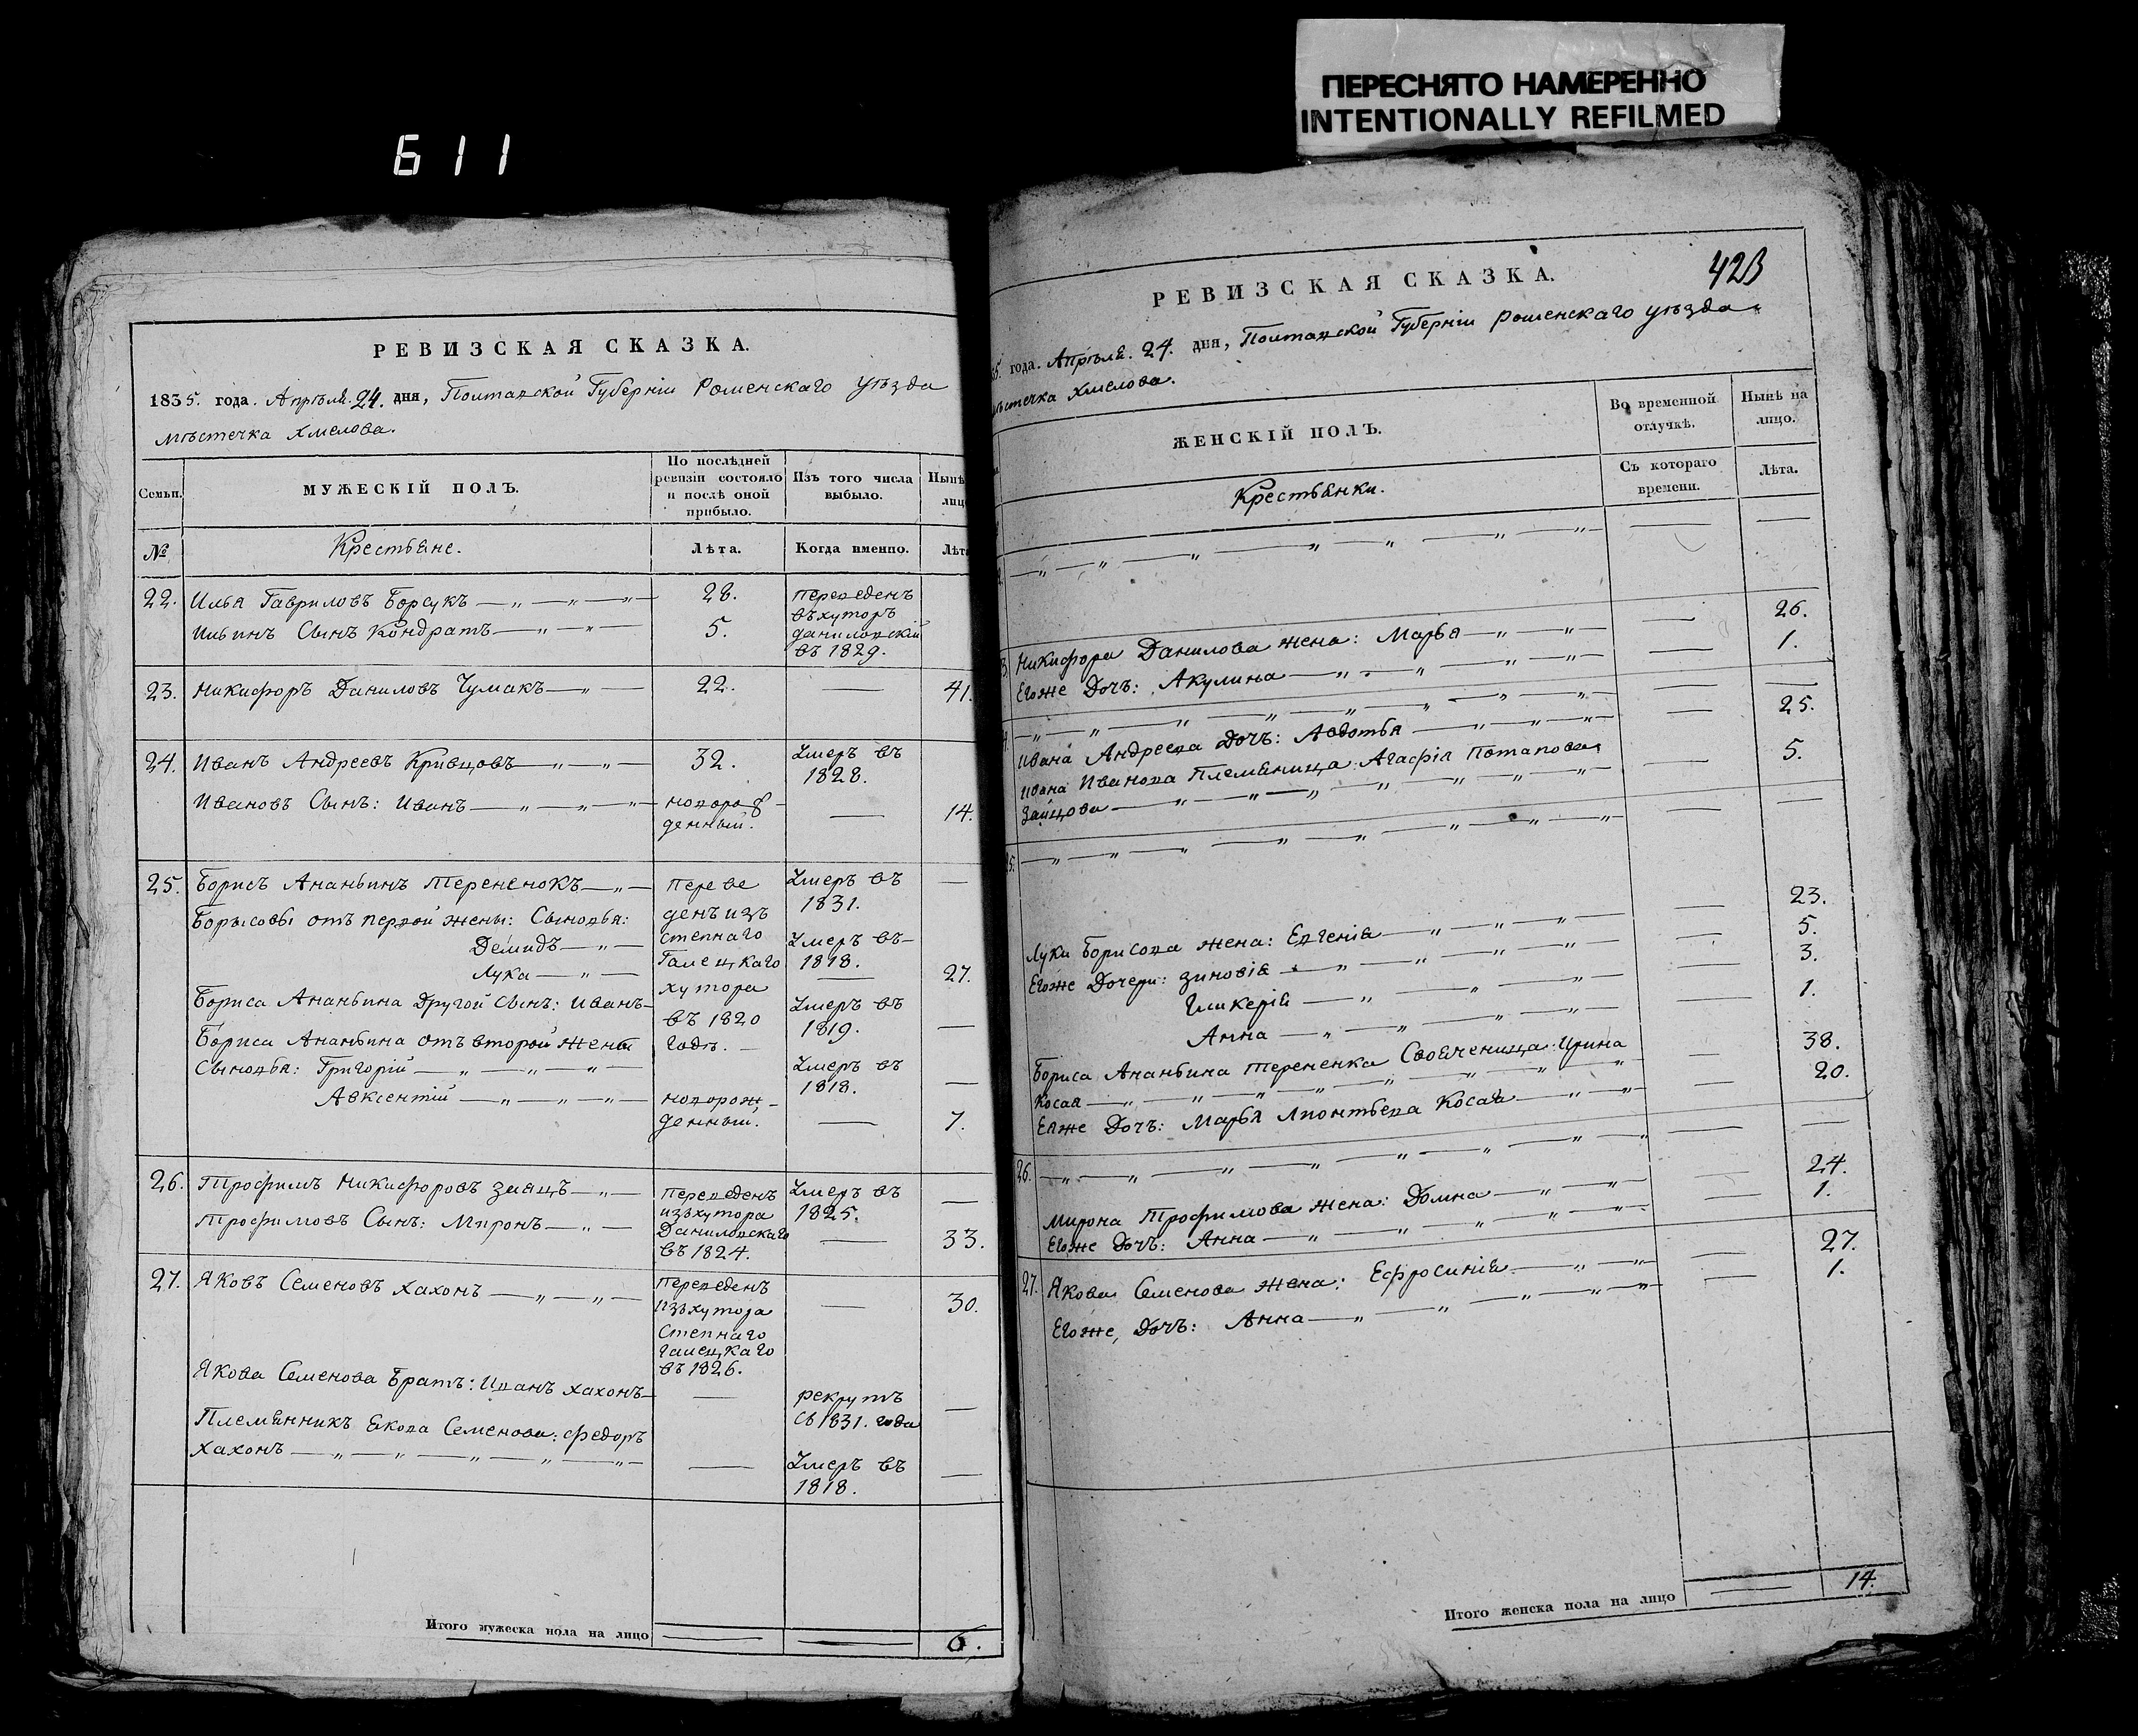 ПЕРЕСНЯТО НАМЕРЕННО
INTENTIONALLY REFILMED
611
РЕВИЗСКАЯ СКАЗКА.
1835. года. Апрѣля. 24. дня, Полтавской Губерніи Роменскаго уѣзда
мѣстечка Хмелова.
Семьи.
МУЖЕСКІЙ ПОЛЪ.
По послѣдней
ревизіи состояло
и послѣ оной
прибыло.
Изъ того числа
выбыло.
Нынѣ
лиц
№
Крестьяне.
Лѣта.
Когда именно.
Лѣт
22. Илья Гавриловъ Борсукъ 28. переведенъ
въ хуторъ
Ильинъ Сынъ Кондратъ 5. даниловскій
въ 1829.
23. Никифоръ Даниловъ Чумакъ 22. 41.
24. Иванъ Андреевъ Кривцовъ 32. Умеръ въ
1828.
Ивановъ Сынъ: Иванъ новорож
денный. 14.
25. Борисъ Ананьинъ Терененокъ переве Умеръ въ
1831.
Борысовы отъ первой жены: Сыновья: денъ изъ
Демидъ степнаго Умеръ въ
Лука Галецкаго 1818. 27.
хутора
Бориса Ананьина Другой Сынъ: Иванъ въ 1820 Умеръ въ
1819.
Бориса Ананьина отъ второй жены годѣ.
Сыновья: Григорій Умеръ въ
1818.
Авксентій новорож
денный. 7.
26. Трофимъ Никифоровъ Заяцъ переведенъ Умеръ въ
изъ хутора 1825.
Трофимовъ Сынъ: Миронъ Даниловскаго 33.
въ 1824.
27. Яковъ Семеновъ Хахонъ переведенъ
изъ хутора 30.
Степнаго
галецкаго
въ 1826.
Якова Семенова Братъ: Иванъ Хахонъ рекрутъ
съ 1831. года
Племянникъ Якова Семенова: Федоръ
Хахонъ Умеръ въ
1818.
Итого мужеска пола на лицо 6.
423
РЕВИЗСКАЯ СКАЗКА.
35. года. Апрѣля. 24. дня, Полтавской Губерніи роменскаго уѣзда
мѣстечка Хмелова.
ЖЕНСКІЙ ПОЛЪ.
Во временной
отлучкѣ.
Нынѣ на
лицо.
Крестьянки.
Съ котораго
времени.
Лѣта.
Никифора Данилова жена: Марья 26.
Егоже Дочъ: Акулина 1.
Ивана Андреева Дочъ: Авдотья 25.
Ивана Иванова Племяница Агафія Потапова
Зайцова 5.
25.
Луки Борисова жена: Евгенія 23.
Егоже Дочери: Зиновія 5.
Гликерія 3.
Анна 1.
Бориса Ананьина Терененка Своячница: Ирина
Косая 38.
Еяже Дочъ: Марья Леонтьева Косая 20.
26.
Мирона Трофимова жена: Домна 24.
Егоже Дочъ: Анна 1.
27. Якова Семенова жена: Ефросинія 27.
Егоже, Дочъ: Анна 1.
Итого женска пола на лицо 14.